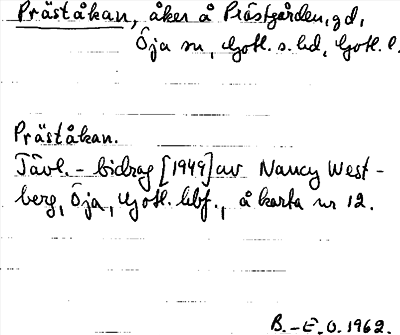 Präståkan, åker å Prästgården, gd,
Öja sn, Gotl. s. hd, Gotl. l.
Präståkan.
Tävl. - bidrag [1949] av Nancy West-
berg, Öja, Gotl. hbf., å karta nr 12.
B.-E. O. 1962.